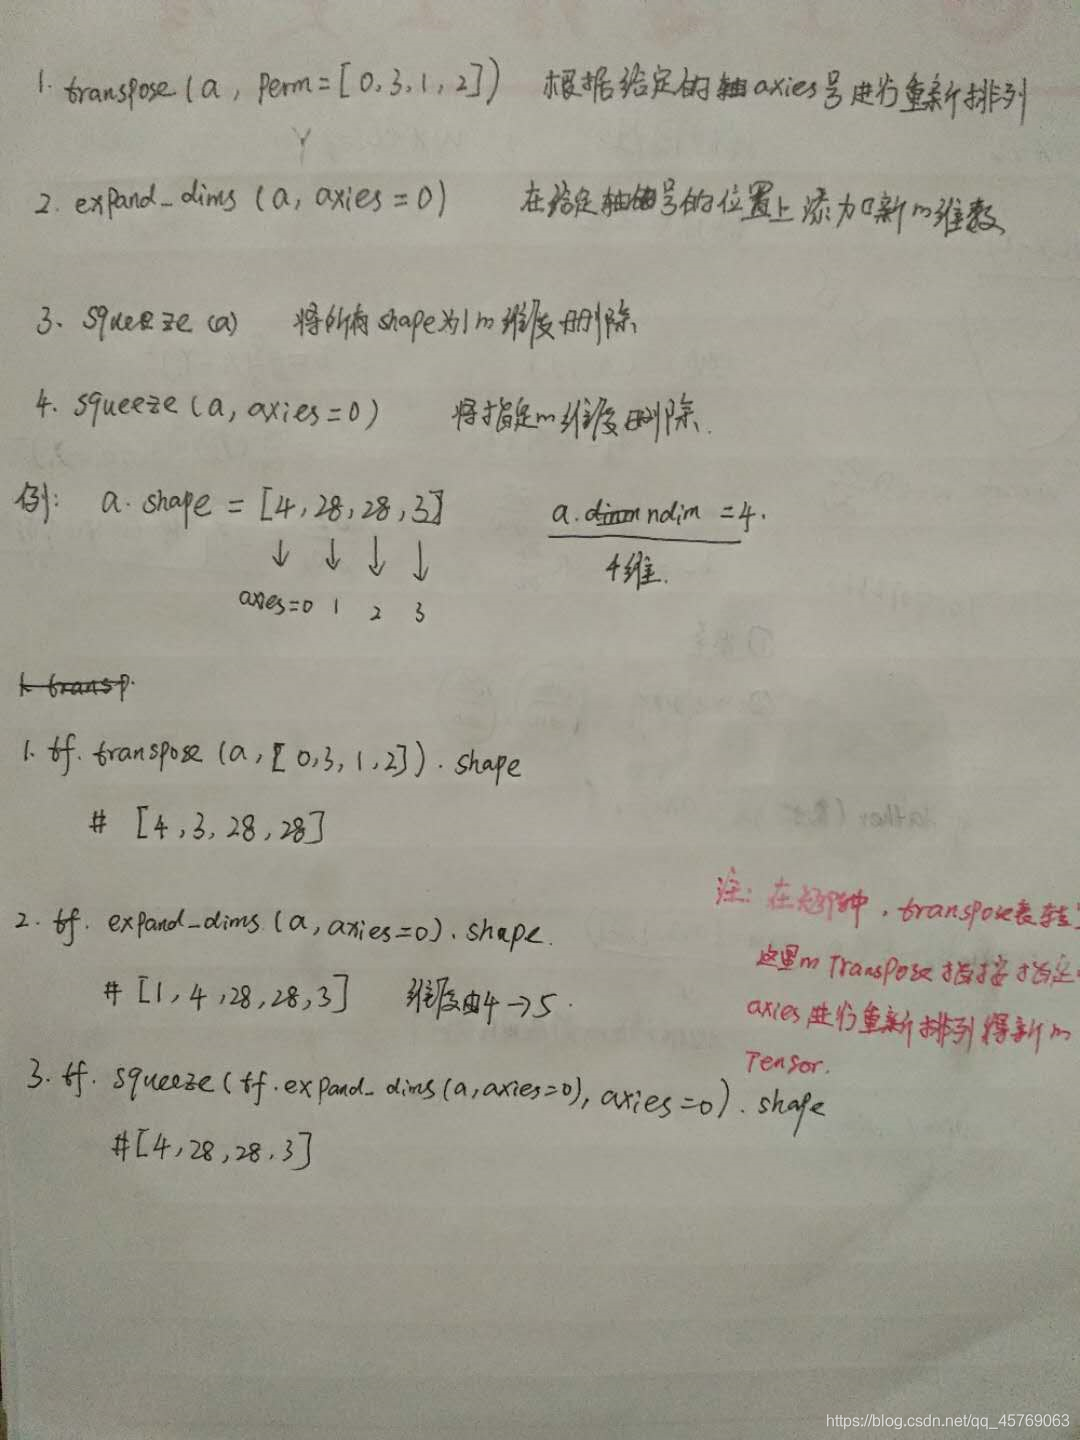 1. transpose (a, perm=[0,3,1,2]) 根据给定的轴axies号进行重新排列
2. expand_dims (a, axies=0) 在给定轴号的位置上添加新的维数
3. squeeze (a) 将所有shape为1的维度删除
4. squeeze (a, axies=0) 将指定的维度删除.
例: a.shape = [4,28,28,3] a.ndim =4.
↓ ↓ ↓ ↓ 4维.
axies=0 1 2 3
1. transp.
1. tf. transpose (a, [0,3,1,2]). shape
# [4,3,28,28]
2. tf. expand_dims (a, axies=0). shape.
# [1,4,28,28,3] 维度由4→5.
3. tf. squeeze (tf.expand_dims (a,axies=0), axies=0). shape
# [4,28,28,3]
注: 在矩阵中, transpose表转
这里的Transpose指按指定
axies进行重新排列得新的
Tensor.
https://blog.csdn.net/qq_45769063